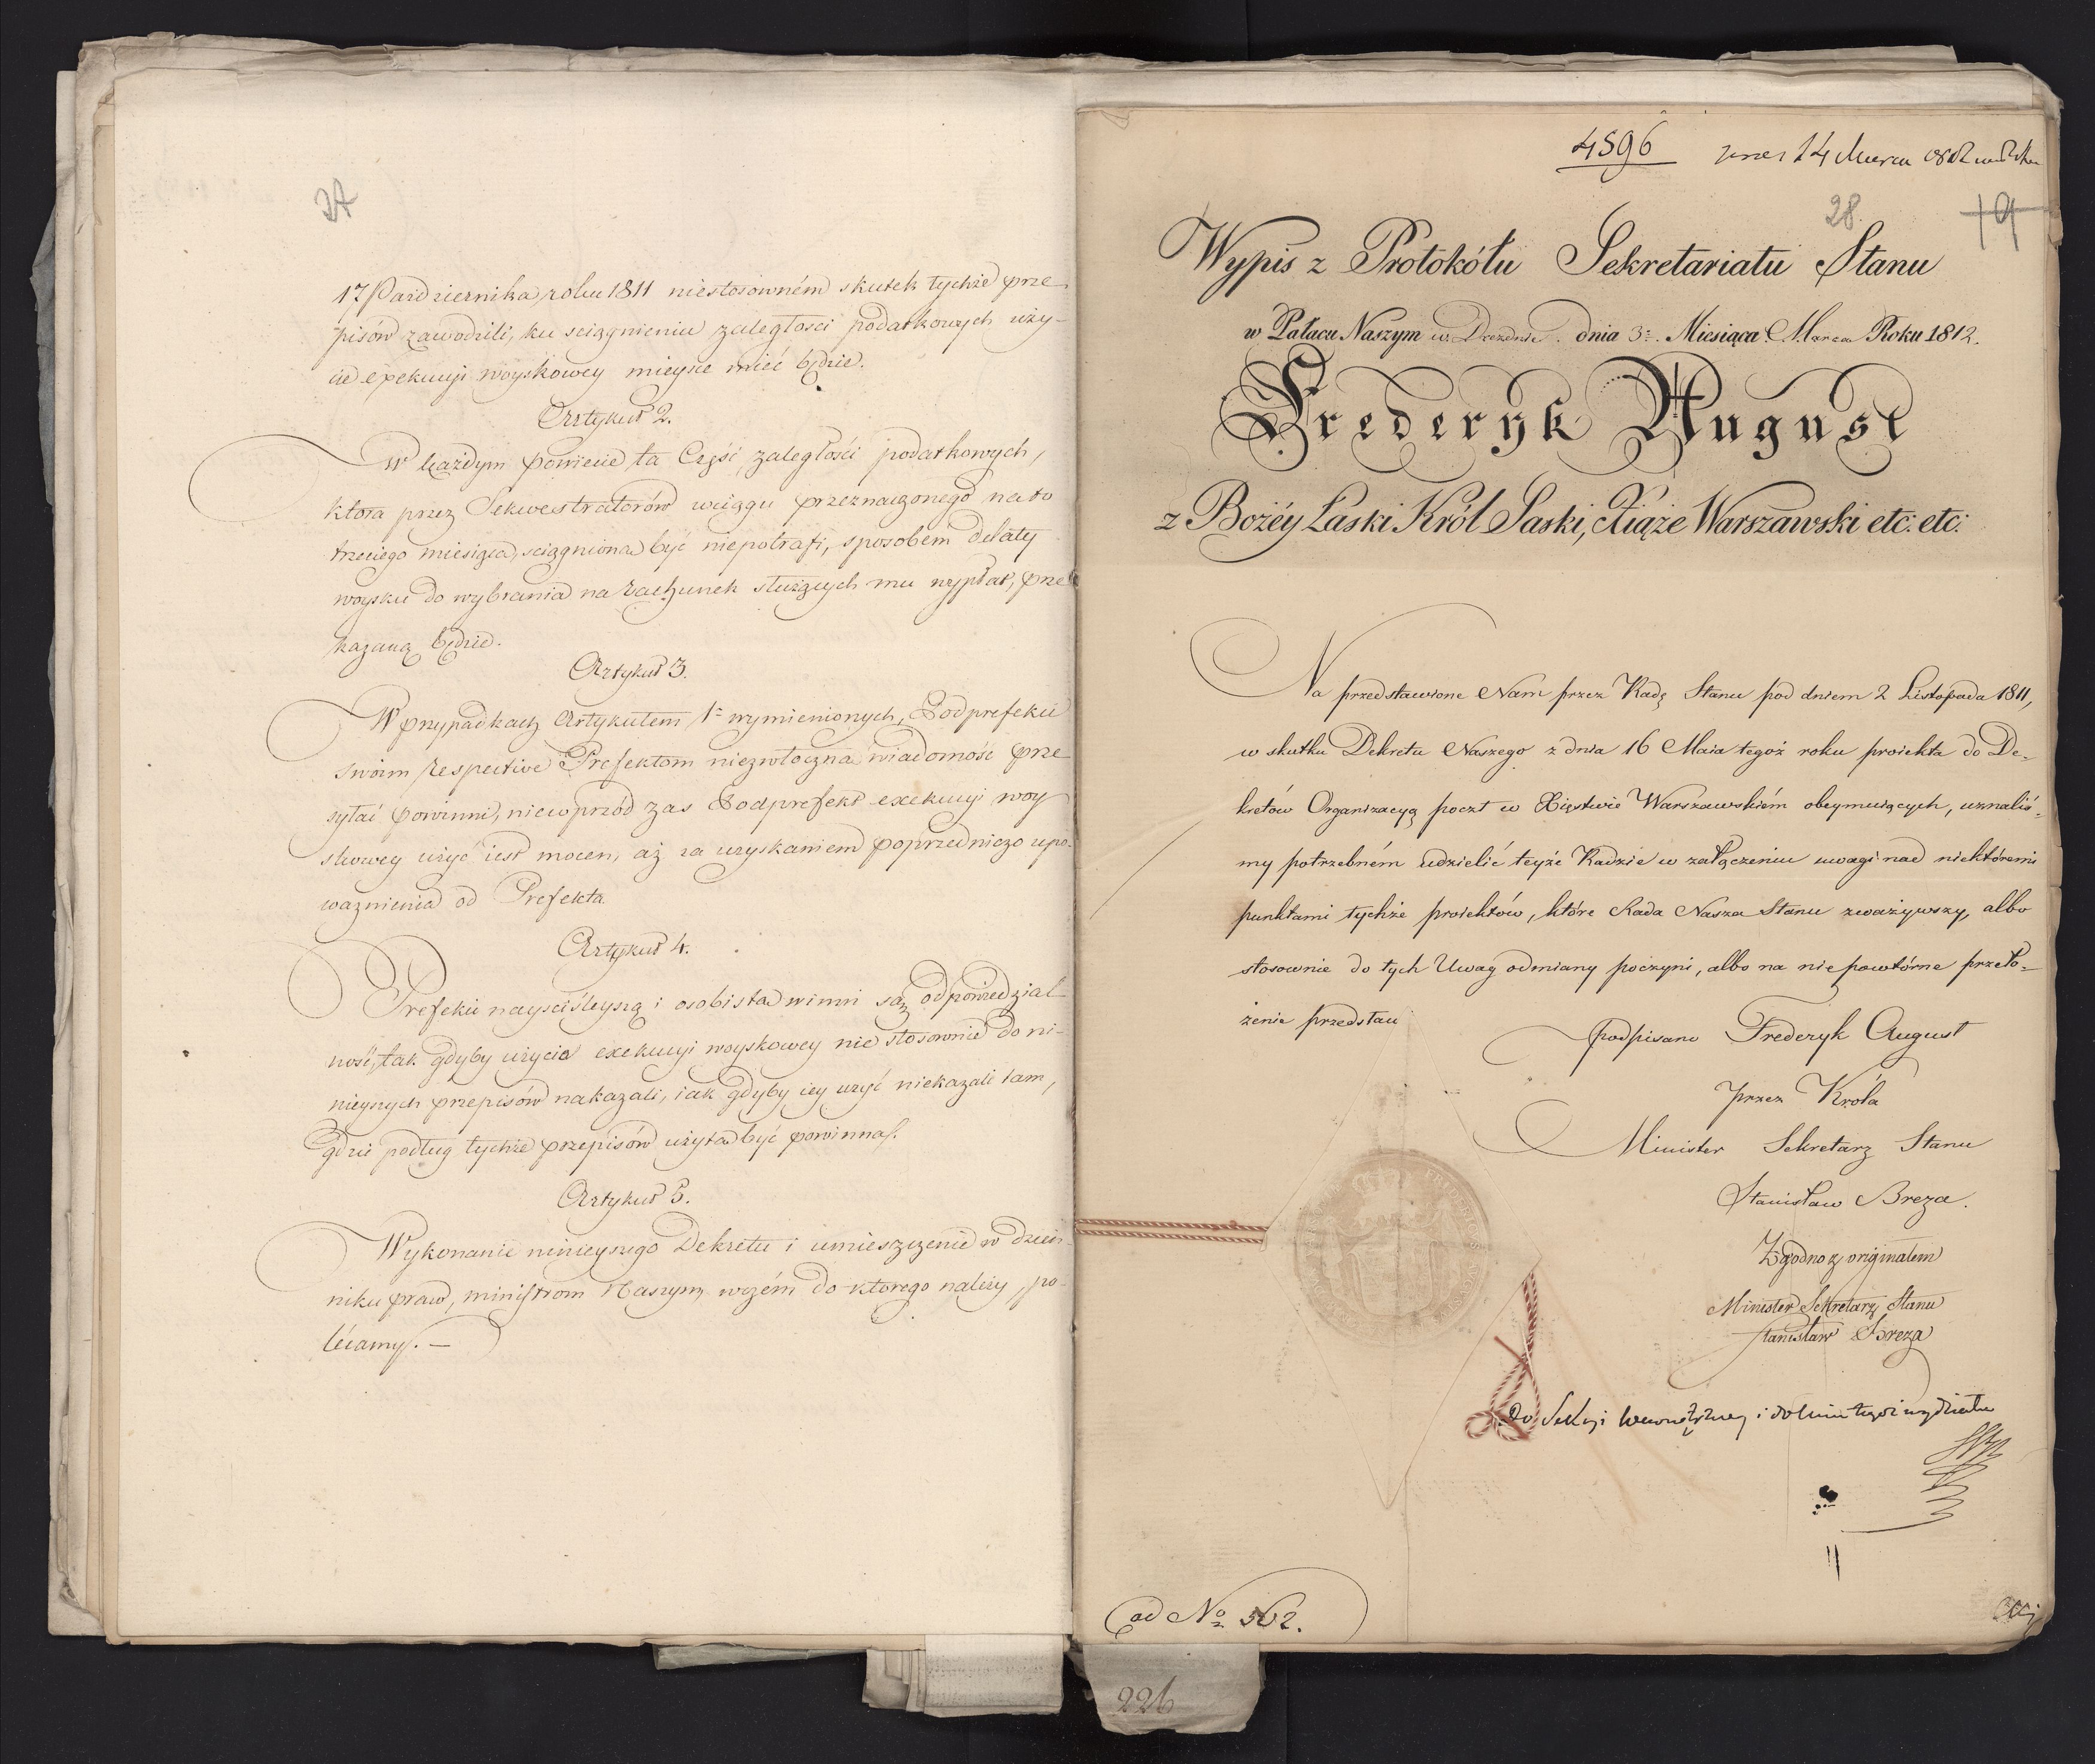 27
17 Październikaroku 1811 niestosowném skutek tychże prze
pisów zawodzili, ku sciągnieniu zaległosci podatkowych uży-
cie exekucyi woyskowey mieysce mieć będzie.
Artykuł 2.
W każdym powiecie ta Część zaległości podatkowych,
ktora przez Sekwestratorów wciągu przeznaczonego na to
trzeciego miesiąca, sciągniona być niepotrafi, sposobem delaty
woysku do wybrania na rachunek służących mu wypłat, prze
kazaną będzie.
Artykuł 3.
W przypadkach Artykułem 1º wymienionych, Podprefekci
swoim respective Prefektom niezwłoczna wiadomość prze
syłać powinni, niewprzód zas Podprefekt exekucyi woy
skowey użyć iest mocen, aż za uzyskaniem poprzedniczo upo-
ważnienia od Prefekta
Artykuł 4.
Prefekci nayściśleyszą i osobista winni są odpowiedzial
ność, tak gdyby użycia exekucyi woyskowey nie stosownie do ni-
nieyszych przepisów nakazali, iak gdyby iey użyć niekazali tam,
gdzie podług tychże przepisów użyta być powinna.
Artykuł 5.
Wykonanie ninieyszego Dekretu i umieszczenie w dzien-
niku praw, ministrom Naszym, wczém do ktorego należy, po-
lécamy. —
4596 14 Marca
28. 19
Wypis z Protokółu Sekretariatu Stanu
w Pałacu Naszym w Dreznie. dnia 3º. Miesiąca Marca Roku 1812.
Frederyk August
z Bożéy Łaski Król Saski, Xiąże Warszawski etc: etc:
Na przedstawione Nam przez Radę Stanu pod dniem 2 Listopada 1811,
w skutku Dekretu Naszego z dnia 16 Maia tegoż roku proiekta do De-
kretów Organizacyą poczt w Xięstwie Warszawskiém obeymuiących, uznaliś-
my potrzebném udzielić teyże Radzie w załączeniu uwagi nad niektóremi
punktami tychże proiektów, które Rada Nasza Stanu zważywszy, albo
stosownie do tych Uwag odmiany poczyni, albo na nie powtórne przeło-
żenie przedstawi
podpisano Frederyk August
przez Króla
Minister Sekretarz Stanu
Stanisław Breza.
Zgodno z originałem
Minister Sekretarz Stanu
Stanisław Breza
Do Sekcyi Wewnętrzney i
ad Nº 562.
226